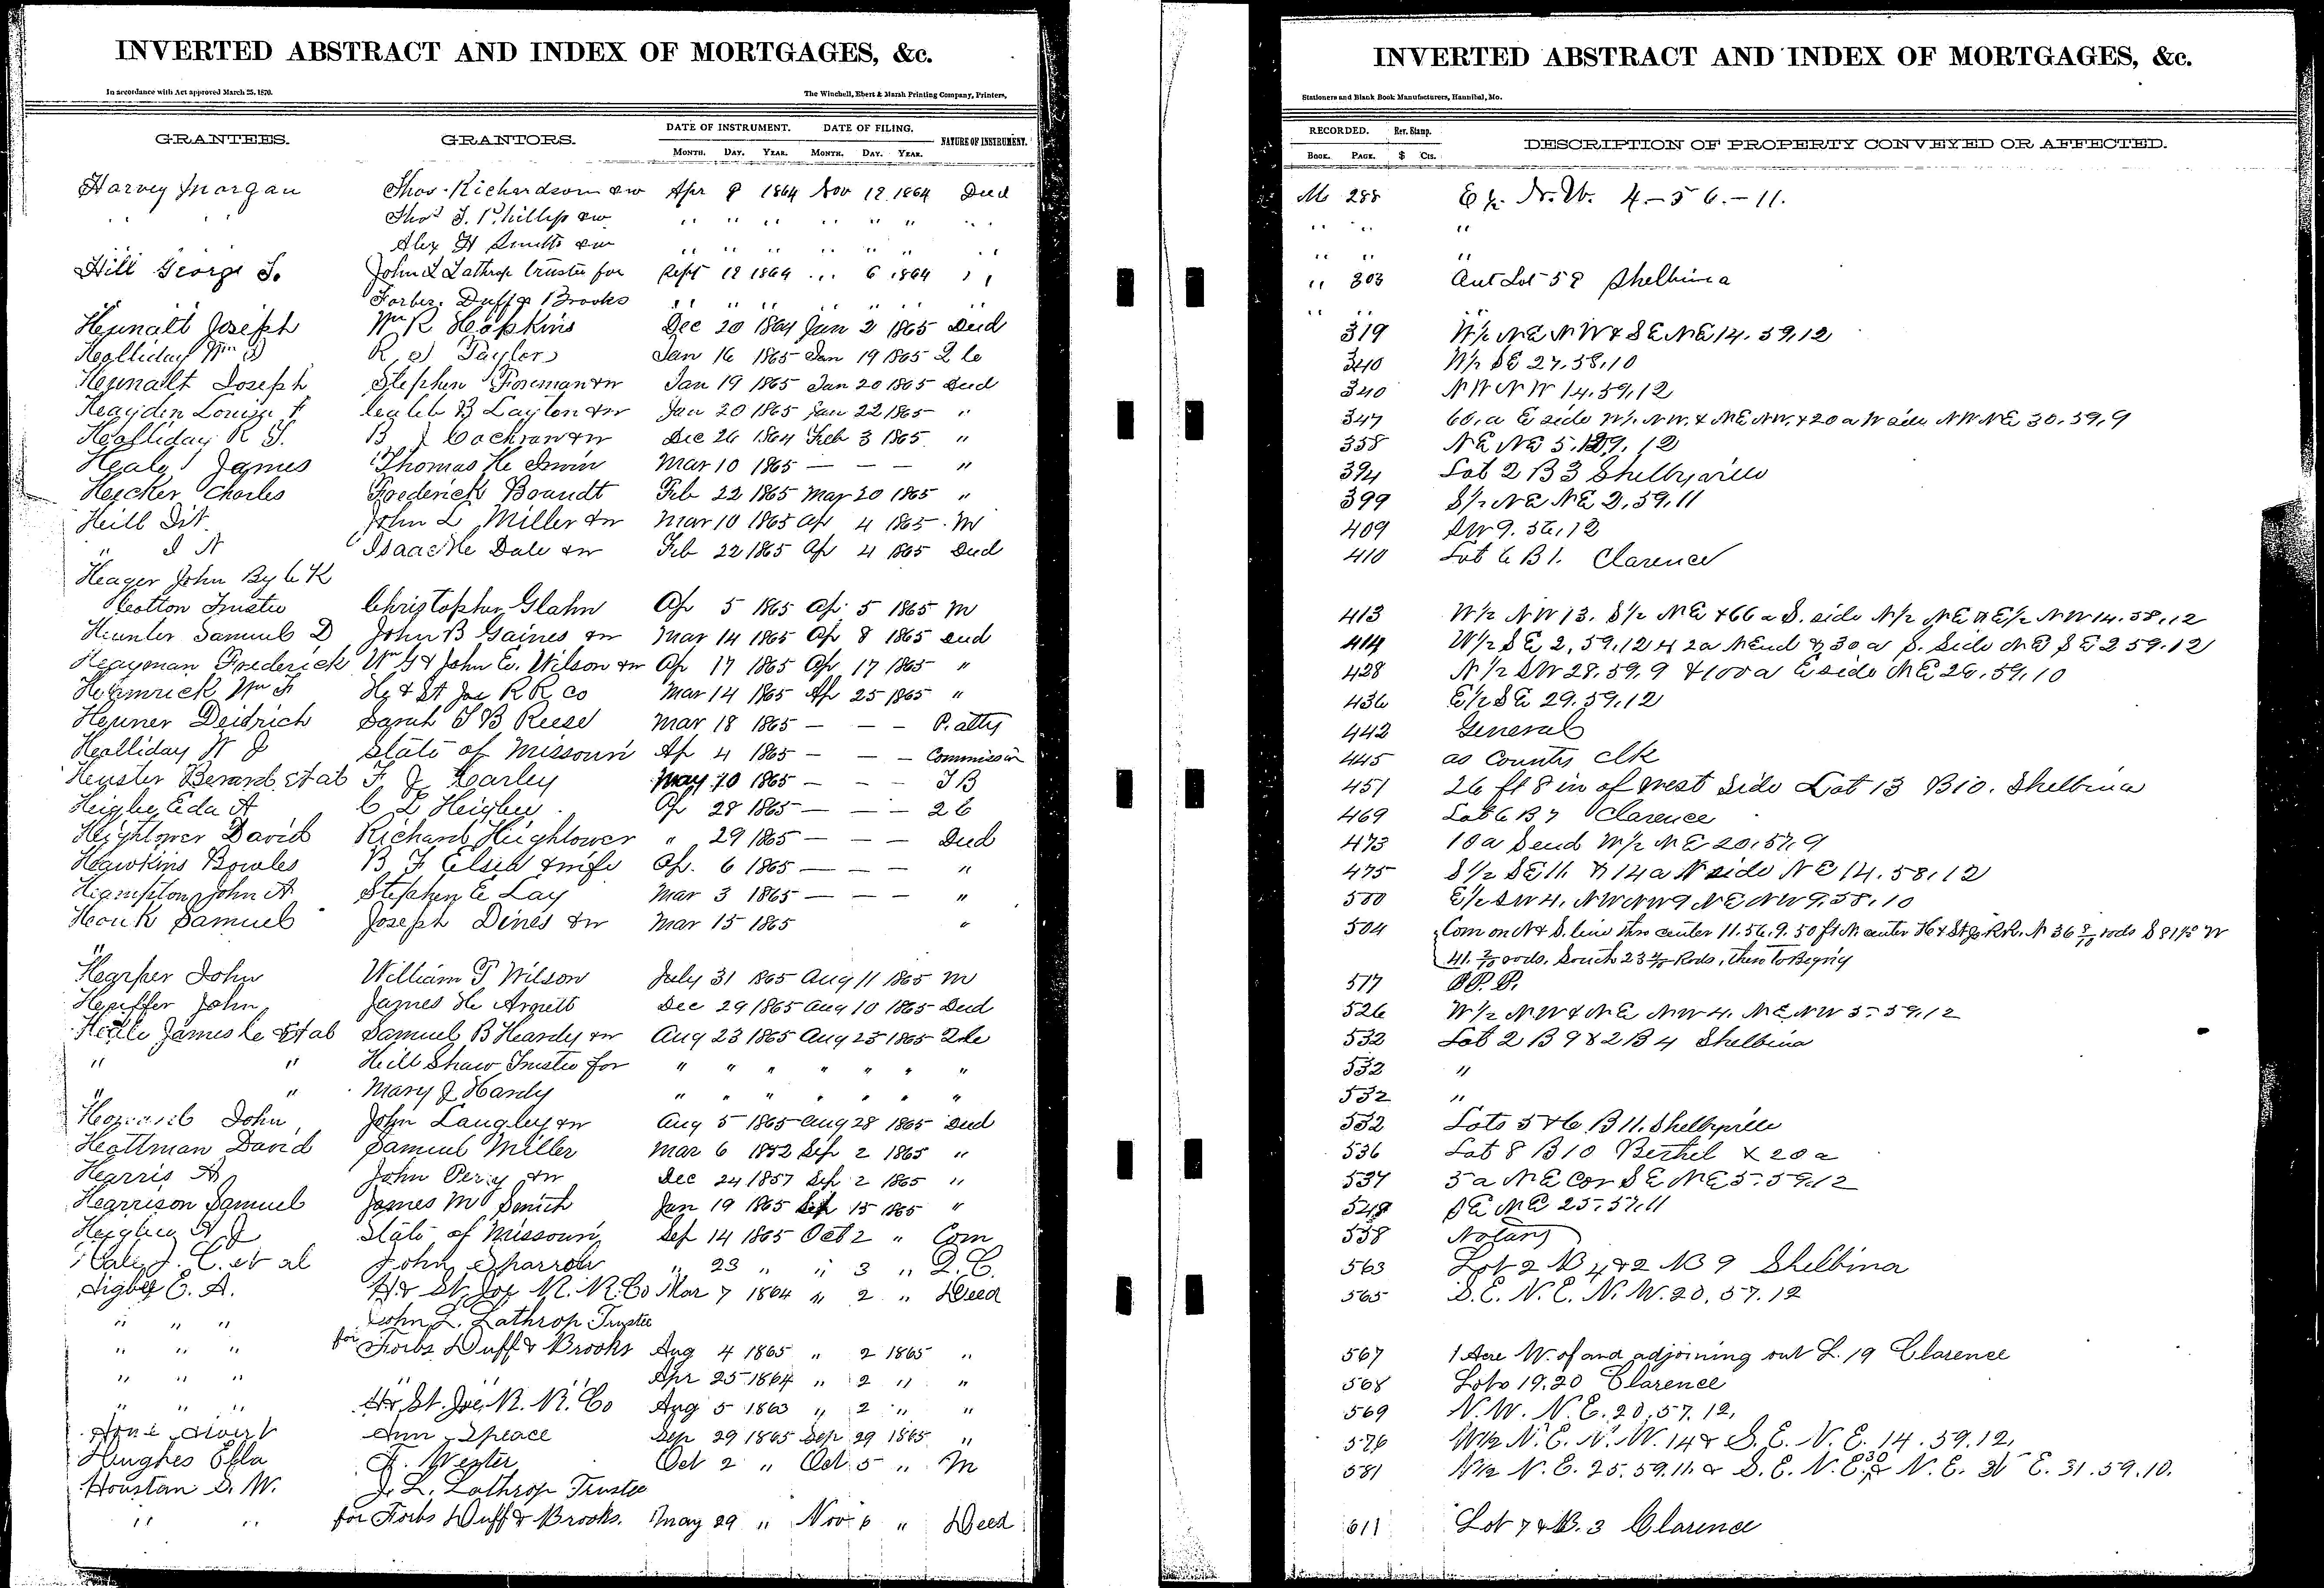 INVERTED ABSTRACT AND INDEX OF MORTGAGES, &c.
In accordance with Act approved March 25, 1870.
The Winchell, Ebert & Marsh Printing Company, Printers,
GRANTEES. GRANTORS. DATE OF INSTRUMENT. DATE OF FILING. NATURE OF INSTRUMENT.
MONTH. DAY. YEAR. MONTH. DAY. YEAR.
Harvey Morgan Thos. Richardson & w Apr 8 1864 Nov 12 1864 Deed
" " Thos J. Phillips & w " " " " " " "
Alex H Smith & w " " " " " " "
Hill George S. John L Lathrop trustee for Sept 12 1864 " 6 1864 "
Forbes, Duff & Brooks " " " " " " "
Hunalt Joseph Wm R Hopkins Dec 20 1864 Jan 2 1865 Deed
Halliday Wm R Taylor Jan 16 1865 Jan 19 1865 2 c
Hunalt Joseph Stephen Foreman & w Jan 19 1865 Jan 20 1865 Deed
Hayden Louisa F Caleb B Layton & w Jan 20 1865 Jan 22 1865 "
Halliday R S. B J Cochran & w Dec 26 1864 Feb 3 1865 "
Healy James Thomas H Irwin Mar 10 1865 — — — "
Hecker Charles Frederick Brandt Feb 22 1865 Mar 20 1865 "
Hill John L Miller & w Mar 10 1865 Ap 4 1865 M
" I N Isaac Mc Dale & w Feb 22 1865 Ap 4 1865 Deed
Hager John By C K
Cotton Trustee Christopher Glahn Ap 5 1865 Ap 5 1865 M
Hunter Samuel D John B Gaines & w Mar 14 1865 Ap 8 1865 Deed
Hayman Frederick Wm G & John E. Wilson & w Ap 17 1865 Ap 17 1865 "
Hamrick Wm F H & St Joe R R Co Mar 14 1865 Ap 25 1865 "
Heuner Deidrich Sarah S B Reese Mar 18 1865 — — — P. atty
Halliday W J State of Missouri Ap 4 1865 — — — Commission
Huster Berard et al F J Earley May 10 1865 — — — T B
Higbee Eda A C L Higbee Ap 28 1865 — — — 2 C
Hightower David Richard Hightower " 29 1865 — — — Deed
Hawkins Bowles B F Elsea & wife Ap. 6 1865 — — — "
Hampton John A Stephen E Lay Mar 3 1865 — — — "
Houk Samuel Joseph Dines & w Mar 15 1865 "
"
Harper John William T Wilson July 31 1865 Aug 11 1865 M
Heiffer John James H Arnett Dec 29 1865 Aug 10 1865 Deed
Hale James C et al Samuel B Hardy & w Aug 23 1865 Aug 23 1865 2 c
" " Hill Shaw Trustee for " " " " " " "
" " Mary J Hardy " " " " " " "
Howard John John Langley & w Aug 5 1865 Aug 28 1865 Deed
Hattman David Samuel Miller Mar 6 1852 Sep 2 1865 "
Harris A John Perry & w Dec 24 1857 Sep 2 1865 "
Harrison Samuel James M Smith Jan 19 1865 Sep 15 1865 "
Higbee A J State of Missouri Sep 14 1865 Oct 2 " Com
Hale J. C. et al John Sparrow " 23 " " 3 " Q. C.
Higbee E. A. H & St. Joe R. R. Co Mar 7 1864 " 2 " Deed
" " " John L. Lathrop Trustee
" " " for Forbs Duff & Brooks Aug 4 1865 " 2 1865 "
" " " Apr 25 1864 " 2 " "
" " " H & St. Joe R. R. Co Aug 5 1863 " 2 " "
Ann Speace Sep 29 1865 Sep 29 1865 "
Hughes Effa F. Wester Oct 2 " Oct 5 " M
Houstan S. W. J. L. Lathrop Trustee
" " for Forbs Duff & Brooks. May 29 " Nov 6 " Deed
INVERTED ABSTRACT AND INDEX OF MORTGAGES, &c.
Stationers and Blank Book Manufacturers, Hannibal, Mo.
RECORDED. Rev. Stamp. DESCRIPTION OF PROPERTY CONVEYED OR AFFECTED.
BOOK. PAGE. $ Cts.
M 288 E ½ N. W. 4 - 56 - 11.
" " "
" " "
" 303 Out Lot 58 Shelbina
" "
319 W½ NE NW & SE NE 14. 59, 12
340 W½ SE 27. 58. 10
340 NW NW 14. 59, 12
347 60. a E side W½ NW. & NE NW. & 20 a W side NW NE 30. 59, 9
358 NE NE 5. 59, 12
394 Lot 2 B 3 Shelbyville
399 S½ NE NE 2, 59, 11
409 SW 9. 56, 12
410 Lot 6 B 1. Clarence
413 W½ NW 13. S½ NE & 66 a S. side N½ NE & E½ NW 14. 58, 12
414 W½ SE 2, 59, 12 & 2 a N End & 30 a S. Side NE SE 2 59. 12
428 N½ SW 28, 59, 9 & 100 a E side NE 26, 59, 10
436 E½ SE 29. 59, 12
442 General
445 as County Clk
451 26 ft 8 in of west side Lot 13 B 10. Shelbina
469 Lot 6 B 7 Clarence
473 10 a S end W½ NE 20, 57, 9
475 S½ SE 11 & 14 a N side NE 14. 58, 12
500 E½ SW 4, NW NW 9 NE NW 9, 58, 10
504 Com on N & S. line thro center 11. 56. 9. 50 ft N center H & St Jo R R. N 36 rods S 81½ W
41. rods. South 23 Rods, then To Begng
517 P. P.
526 W½ NW & NE NW 4. NE NW 5- 59, 12
532 Lot 2 B 9 & 2 B 4 Shelbina
532 "
532 "
532 Lots 5 & 6 B 11. Shelbyville
536 Lot 8 B 10 Bethel & 20 a
537 5 a NE Cor SE NE 5. 59. 12
548 SE NE 25. 57. 11
558 Notary
563 Lot 2 B 4 & 2 B 9 Shelbina
565 S. E. N. E. N. W. 20, 57. 12
567 1 Acre W. of and adjoining out L. 19 Clarence
568 Lots 19, 20 Clarence
569 N. W. N. E. 20, 57. 12,
576 W½ N. E. N. W. 14 & S. E. N. E. 14. 59. 12.
581 N½ N. E. 25. 59. 11. & S. E. N. E. 30 & N. E. E. 31. 59. 10.
611 Lot 7 & B. 3 Clarence